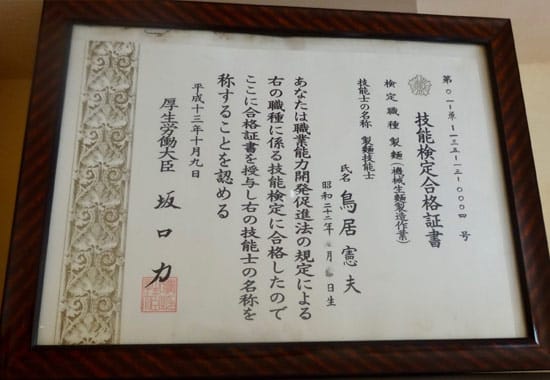 第〇一-京-一三五-一二-〇〇〇四号
技能検定合格証書
検定職種 製麺(機械生麺製造作業)
技能士の名称 製麺技能士
氏名 鳥居憲夫
昭和二十二年 月 日生
あなたは職業能力開発促進法の規定による
右の職種に係る技能検定に合格したので
ここに合格証書を授与し右の技能士の名称を
称することを認める
平成十三年十月九日
厚生労働大臣 坂口力